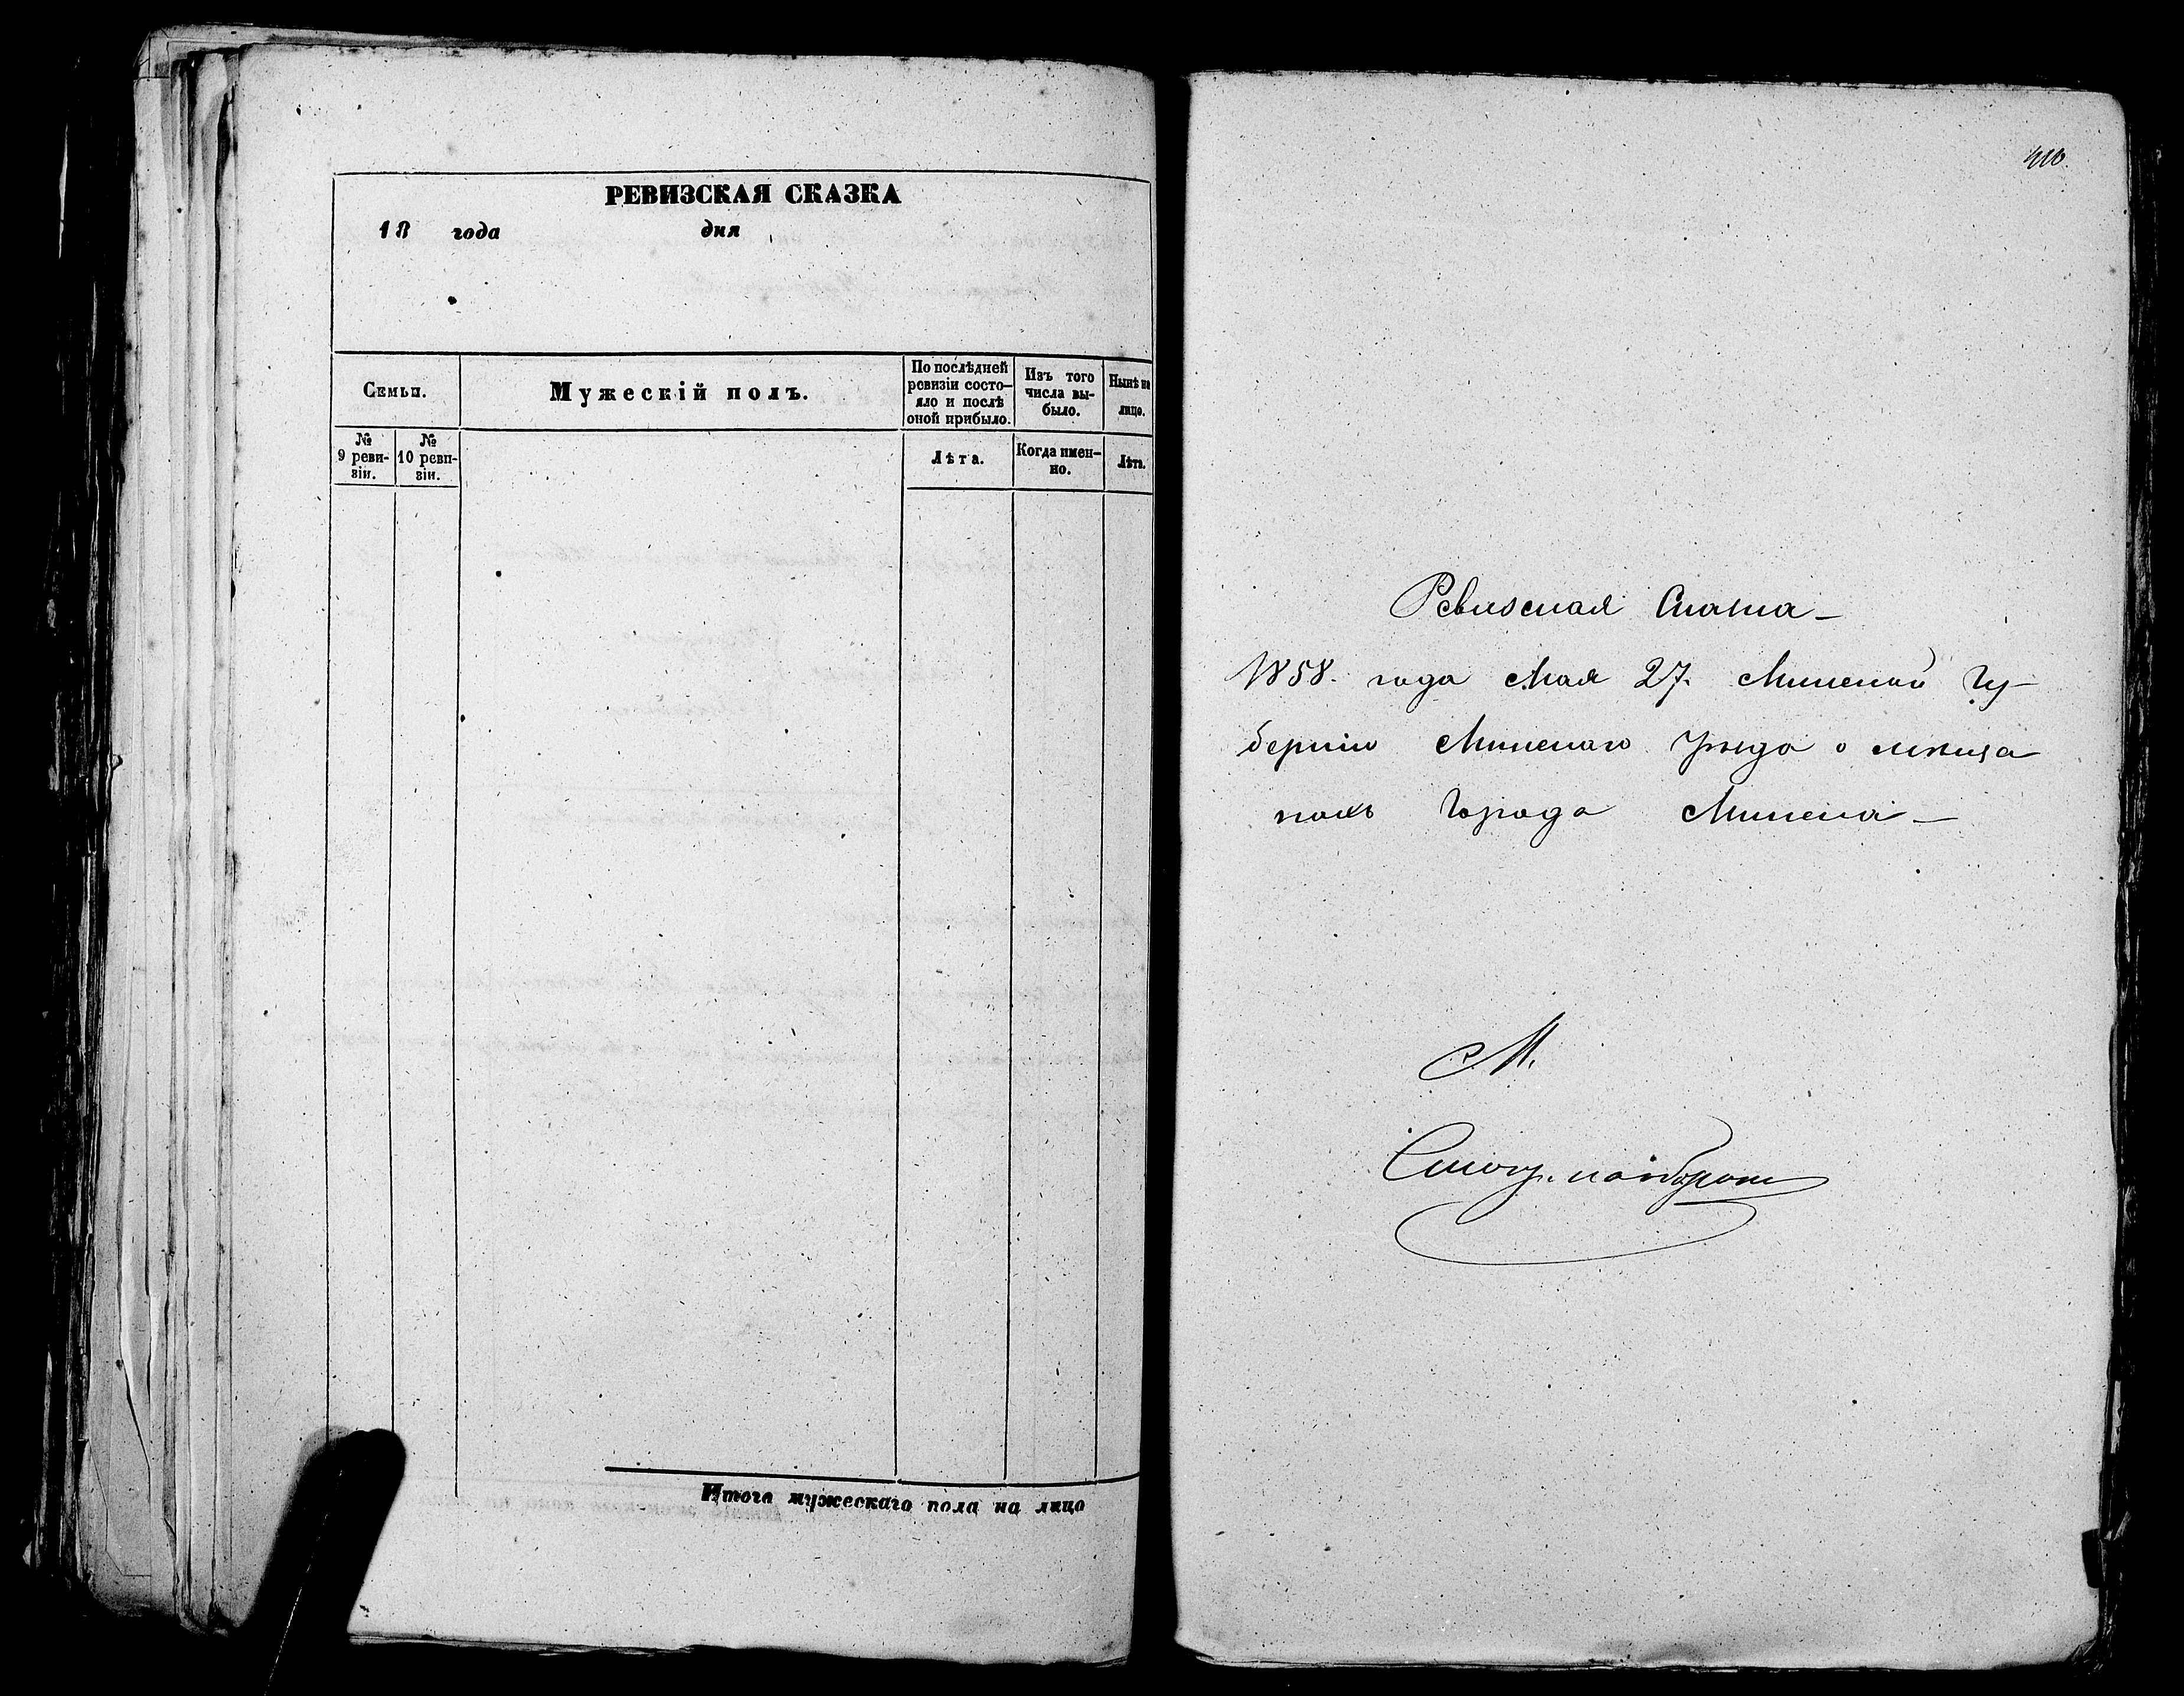 РЕВИЗСКАЯ СКАЗКА
18 года дня
Семьи.
Мужескій полъ.
По послѣдней
ревизіи состо-
яло и послѣ
оной прибыло.
Изъ того
числа вы-
было.
Нынѣ на
лицо.
№
9 реви-
зіи.
№
10 реви-
зіи.
Лѣта.
Когда имен-
но.
Лѣта.
Итого мужескаго пола на лицо
Ревизская Сказка—
1858. года Мая 27. Минской Гу-
берніи Минскаго Уѣзда о мѣща
нахъ Города Минска—
М.